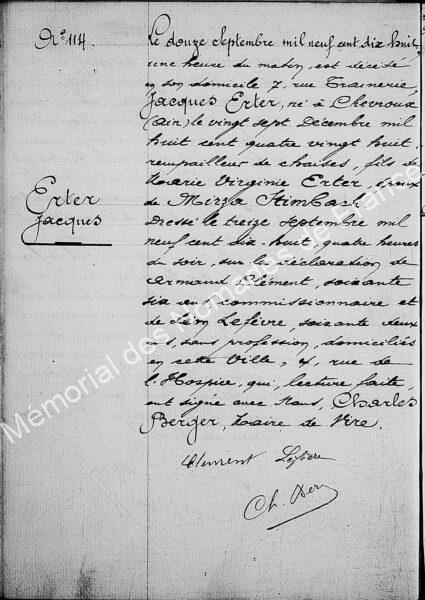 N° 114.
Erter
Jacques
Le douze Septembre mil neuf cent dix huit
une heure du matin, est décédé
en son domicile 7, rue Trainerie,
Jacques Erter, né à Chevroux
(Ain) le vingt sept Décembre mil
huit cent quatre vingt huit.
rempailleur de chaises, fils de
Marie Virginie Erter, époux
de Mirza Stimbach
Dressé le treize Septembre mil
neuf cent dix-huit, quatre heures
du soir, sur la déclaration de
Armand Clément, soixante
six ans, commissionnaire et
de Léon Lefèvre, soixante deux
ans, sans profession, domiciliés
en cette Ville, 4, rue de
l'Hospice, qui, lecture faite,
ont signé avec Nous, Charles
Berger, Maire de Vire.
Clément Lefèvre
Ch. Ber
Mémorial des Nomades de France